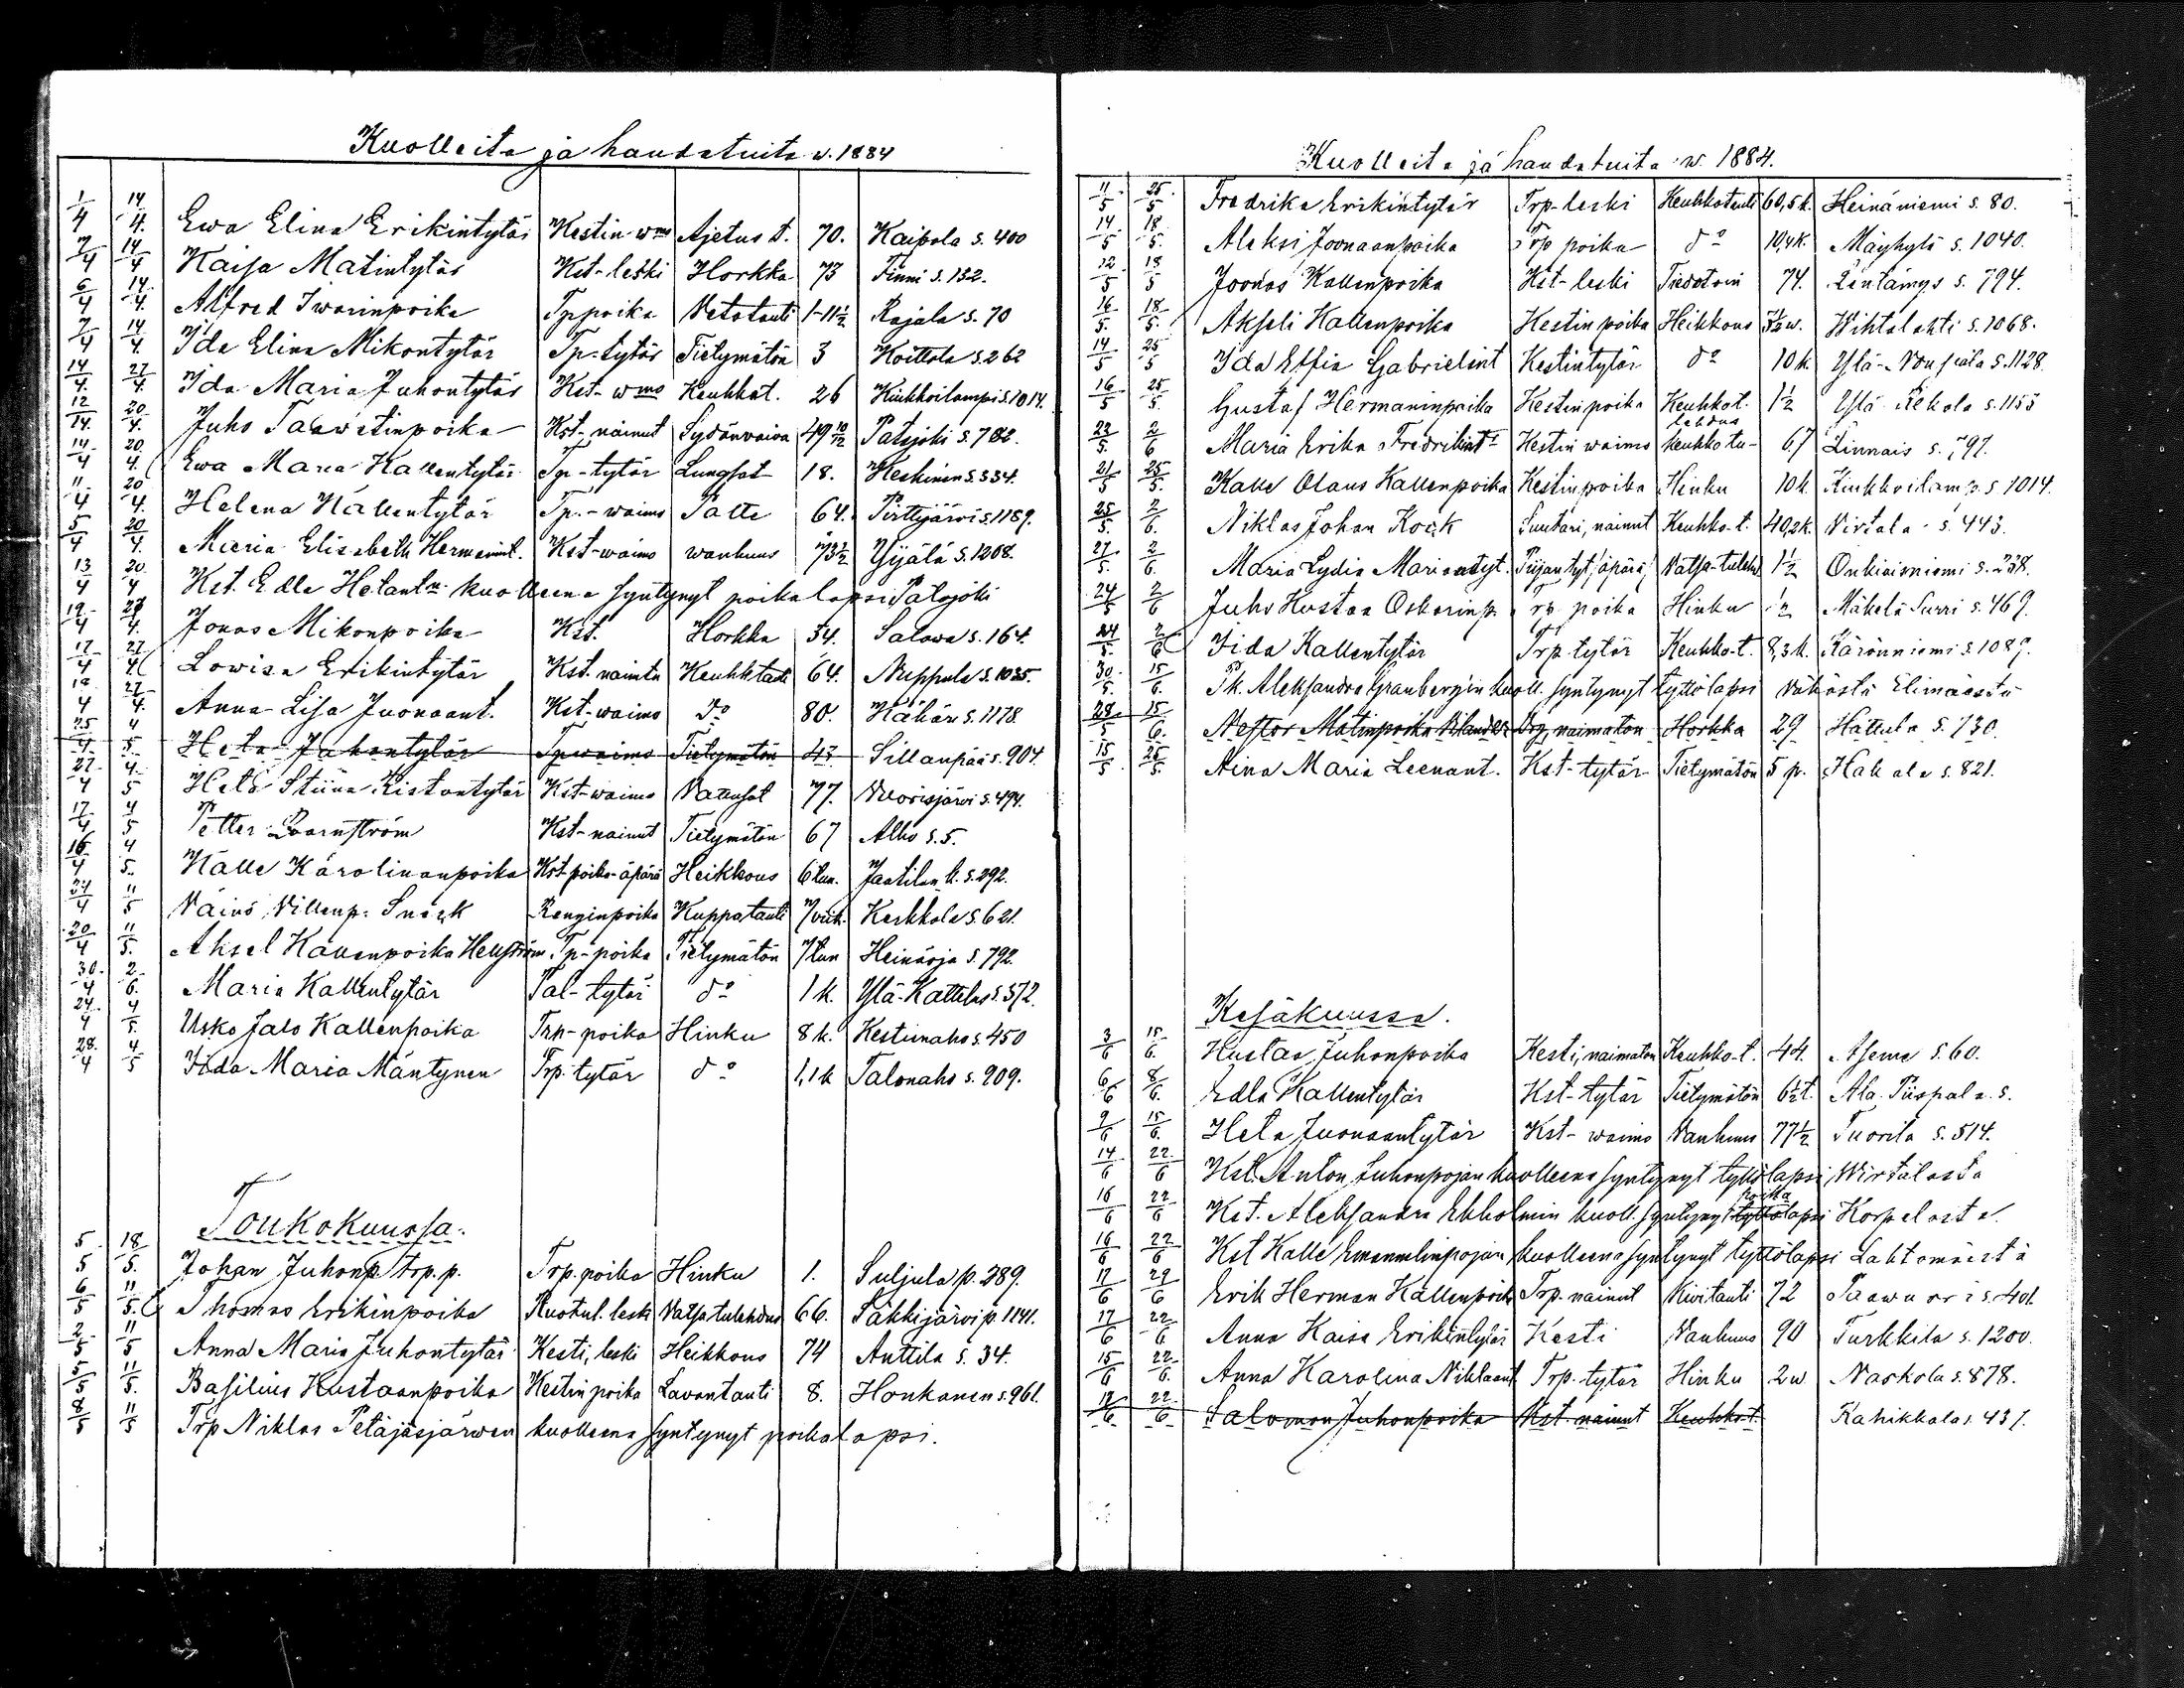 Kuolleita ja haudatuita v. 1884
1/4 14/4. Ewa Elina Erikintytär Kestin wmo Ajetus t. 70. Kaipola s. 400
7/4 14/4 Kaisa Matintytär Kst-leski Horkka 73 Finni s. 132.
6/4 14/4. Alfred Iwarinpoika Tp poika Vetotauti 1-11½ Rajala s. 70
7/4 14/4. Ida Elina Mikontytär Tp-tytär Tietymätön 3 Köttola s. 262
14/4. 27/4. Ida Maria Juhontytär Kst-wmo Keuhkot. 26 Kiukkoilampi s. 1014.
12/14. 20/4. Juho Taawetinpoika Kst-nainut Sydänvaiva 49 10/12 Patojoki s. 782.
14/4 20/4. Ewa Maria Kallentytär Tp-tytär Lungsot 18. Keskinen s. 534.
11/4 20/4. Helena Kallentytär Tp.-waimo Patte 64. Pirttijärvi s. 1189.
5/4 20/4. Maria Elisabeth Hermannint. Kst-waimo wanhuus 73½ Yijälä s. 1208.
13/4 20/4 Kst. Edla Hetant:n kuolleena syntynyt poikalapsi Patojoki
19/4 27/4. Jonas Mikonpoika Kst. Horkka 54. Salowa s. 164.
17/4 27/4 Lowisa Erikintytär Kst. naintu Keuhktauti 64. Nuppula s. 1035.
19/4 27/4. Anna Lisa Juonaant. Kst-waimo do 80. Kähäri s. 1178.
25/4 4/5. Heta Juhontytär Tpwaimo Tietymätön 43 Sillanpää s. 904.
27/4 4/5 Heta Stiina Kistontytär Kst-waimo Vattusot 77. Vuorisjärvi s. 494.
17/4 4/5 Petter Boarnström Kst-nainut Tietymätön 67 Alho s. 5.
16/4 4/5. Kalle Karolinanpoika Kst poika-äpärä Heikkous 6 tun. Jaatilan k. s. 292.
27/4 11/5 Väinö Villenp. Sneck Renginpoika Kuppatauti 7 viik. Kerkkola s. 621.
20/4 11/5. Aksel Kallenpoika Hellström Tp-poika Tietymätön 7 tun Heinäoja s. 792.
30/4 2/6. Maria Kallentytär Tal-tytär do 1 k. Ylä-Kattelus s. 572.
24/4 4/5. Usko Jalo Kallenpoika Trp-poika Hinku 8 k. Kestinaho s. 450
28/4 4/5 Iida Maria Mäntynen Trp. tytär do 1,1 k Talonaho s. 909.
Toukokuussa.
5/5 18/5. Johan Juhonp. trp.p. Trp. poika Hinku 1. Suljula p. 289.
6/5 11/5. Thomas Erikinpoika Ruotul. leski Vatsatulehdus 66. Säkkijärvi p. 1141.
2/5 11/5 Anna Maria Juhontytär Kesti, leski Heikkous 74 Anttila s. 34.
5/5 11/5. Basilius Kustaanpoika Kestinpoika Lavantauti 8. Honkanen s. 961.
8/5 11/5 Trp Niklas Petäjäsjärwen kuolleena syntynyt poikalapsi.
Kuolleita ja haudatuita w. 1884.
11/5 25/5 Fredrika Erikintytär Trp-leski Keuhkotauti 60,5 k. Heinäniemi s. 80.
14/5 18/5. Aleksi Joonaanpoika Trp poika do 10,4 k. Mäyhylä s. 1040.
12/5 18/5 Joonas Kallenpoika Kst-leski Tiedotoin 74. Lentämys s. 794.
16/5. 18/5. Akseli Kallenpoika Kestin poika Heikkous Wihtalahti s. 1068.
14/5 25/5 Ida Effia Gabrielint Kestintytär do 10 k. Ylä-Nousiala s. 1128.
16/5 25/5. Gustaf Hermaninpoika Kestinpoika Keuhkot. 1½ Ylä Rekola s. 1155
22/5. 2/6 Maria Erika Fredrikint Kestin waimo keuhkotulehdus 67 Linnais s. 797.
21/5 25/5. Kalle Olaus Kallenpoika Kestinpoika Hinku 10 k. Kiukkoilamp. s 1014.
25/5. 2/6. Niklas Johan Kock Suutari, nainut Keuhko-t. 40,2 k. Virtala s. 443.
27/5. 2/6. Maria Lydia Mariantyt. Piijantyt, äpärä, Vatsa-tulehd 1½ Onkisniemi s. 238.
24/5 2/6 Juho Kustaa Oskarinp. Trp poika Hinku ½ Mäkelä Surri s. 469.
24/5. 2/6 Iida Kallentytär Trp. tytär Keuhko-t. 8,3 k. Kärönniemi s. 1089.
30/5. 15/6. Pk. Aleksandra Granbergin kuoll. syntynyt tyttölapsi Vähästä Elimäestä
28/5 15/6. Nestor Matinpoika Vilander Drg, naimaton Horkka 29 Hattula s. 130.
15/5 25/5. Aina Maria Leenant. Kst-tytär Tietymätön 5 p. Hakala s. 821.
Kesäkuussa.
3/6 15/6. Kustaa Juhonpoika Kesti, naimaton Keuhko-t. 44. Asema s. 60.
6/6 8/6. Edla Kallentytär Kst-tytär Tietymätön 6½ t. Ala-Piispala. s.
9/6 15/6. Heta Juonaantytär Kst-waimo Vanhuus 77½ Tuorila s. 514.
14/6 22/6 Kst. Anton Juhonpojan kuolleena syntynyt tyttölapsi Wirtalasta
16/6 22/6 Kst. Aleksandra Ekholmin kuoll. syntynyt tyttö poika lapsi Korpelasta
16/6 22/6 Kst Kalle Emanuelinpojan kuolleena syntynyt tyttölapsi Lahtomäestä
17/6 29/6 Erik Herman Kallenpoika Trp. nainut Kivitauti 72 Paawuori s. 401.
17/6 22/6 Anna Kaisa Erikintytär Kesti Vanhuus 90 Turkkila s. 1200.
15/6 22/6. Anna Karolina Niklaant Trp-tytär Hinku 2 w Naskola s. 878.
12/6. 22/6 Salomon Juhonpoika Kst. nainut Keuhko-t. Kahikkala s. 437.